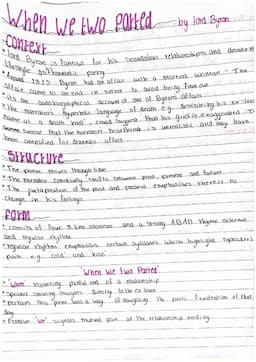 When We two Parted - by lord Byron
Context
• lord Byron is famous for his scandalous relationships and decadent
lifestyle romantic poetry
• Around 1813 Byron had an affair with a married woman. The
affair came to an end in secret to avoid being found out
• its an autobiographical account of one of Byrons affairs
• the narrators hyperbolic language of death e.g. describing his ex-lovers
name as a 'death knell', could suggest that his grief is exaggerated. To
some sense that the narrators heartbreak is unrealistic and may have
been amplified for dramatic effect
Structure
• The poem moves through time
• The narrator continually shifts between past, present and future
• The juxtaposition of the past and present emphasises there is no
change in his feelings
Form
• consists of four 8 line stanzas and a strong ABAB rhyme scheme
and regular rhythm
• regular rhythm emphasises certain syllables which highlight speaker's
pain e.g. 'cold' and 'kiss'
'When We two Parted'
• painful end of a relationship
• speaker directly to the ex lover
• perhaps this poem was a way of the poets frustration of that
day
• Pronoun 'we' signals mutual pain at the relationship ending